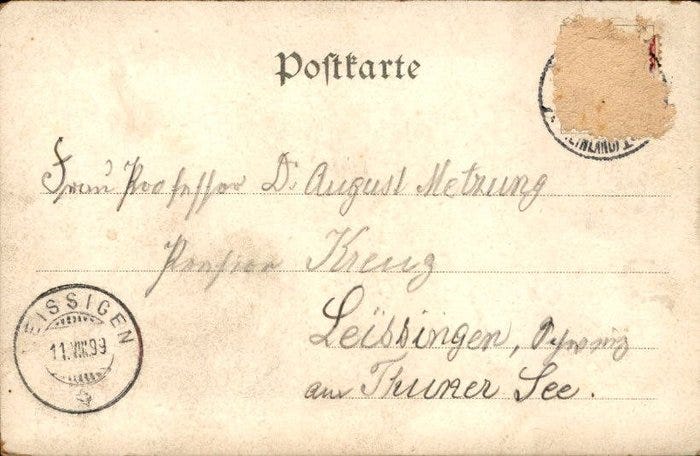 Postkarte
RHEINLAND)
Frau Professor Dr August Metzung
Pension Kreuz
Leissingen, Schweiz
am Thuner See.
LEISSIGEN
11.VIII.99